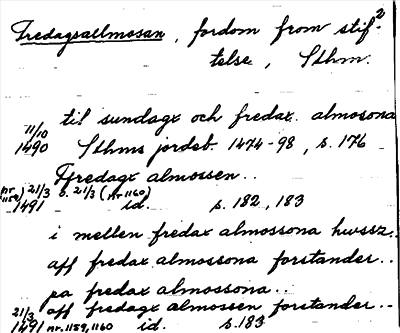 Fredagsallmosan, fordom from stif-²
telse, Sthm.
til sundagx och fredax almosona
11/10 1490 Sthms jordeb. 1474-98, s. 176
Ffredagx almossen..
(nr 1159) 21/3 o. 21/3 (nr 1160)
1491 id. s. 182, 183
i mellen fredax almossona hwssz..
aff fredax almossona forstander..
pa fredax almossona..
21/3 aff fredagx almossen forstander..
1491 nr. 1159, 1160 id. s. 183